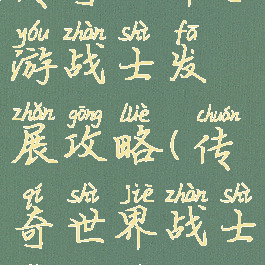 yóu zhàn shì fā
游战士发
zhǎn gōng lüè ( chuán
展攻略(传
qí shì jiè zhàn shì
奇世界战士